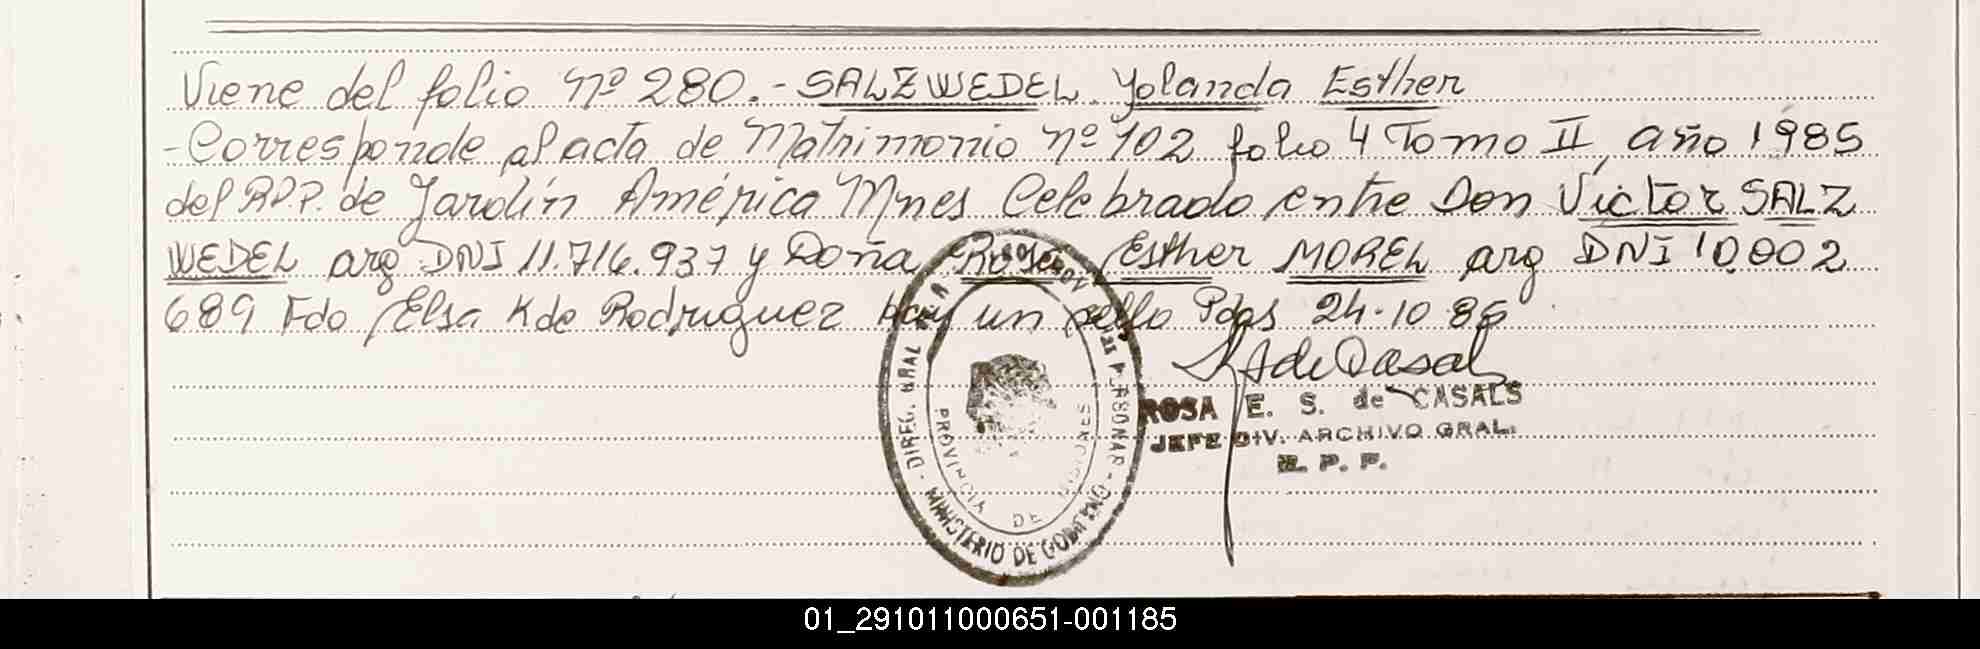 Viene del folio Nº 280.- SALZWEDEL Yolanda Esther
-Corresponde al acta de Matrimonio Nº 102 folio 4 Tomo II, año 1985
del RPP. de Jardín América Mnes Celebrado entre Don Víctor SALZ
WEDEL arg DNI 11.716.937 y Doña Rosa Esther MOREL arg DNI 10.002
689 Fdo Elsa K de Rodriguez hay un sello Pdas 24-10-86
ROSA E. S. de CASALS
JEFE DIV. ARCHIVO GRAL.
R. P. P.
DIREC. GRAL
MINISTERIO DE GOBIERNO
PROVINCIA DE MISIONES
01_291011000651-001185